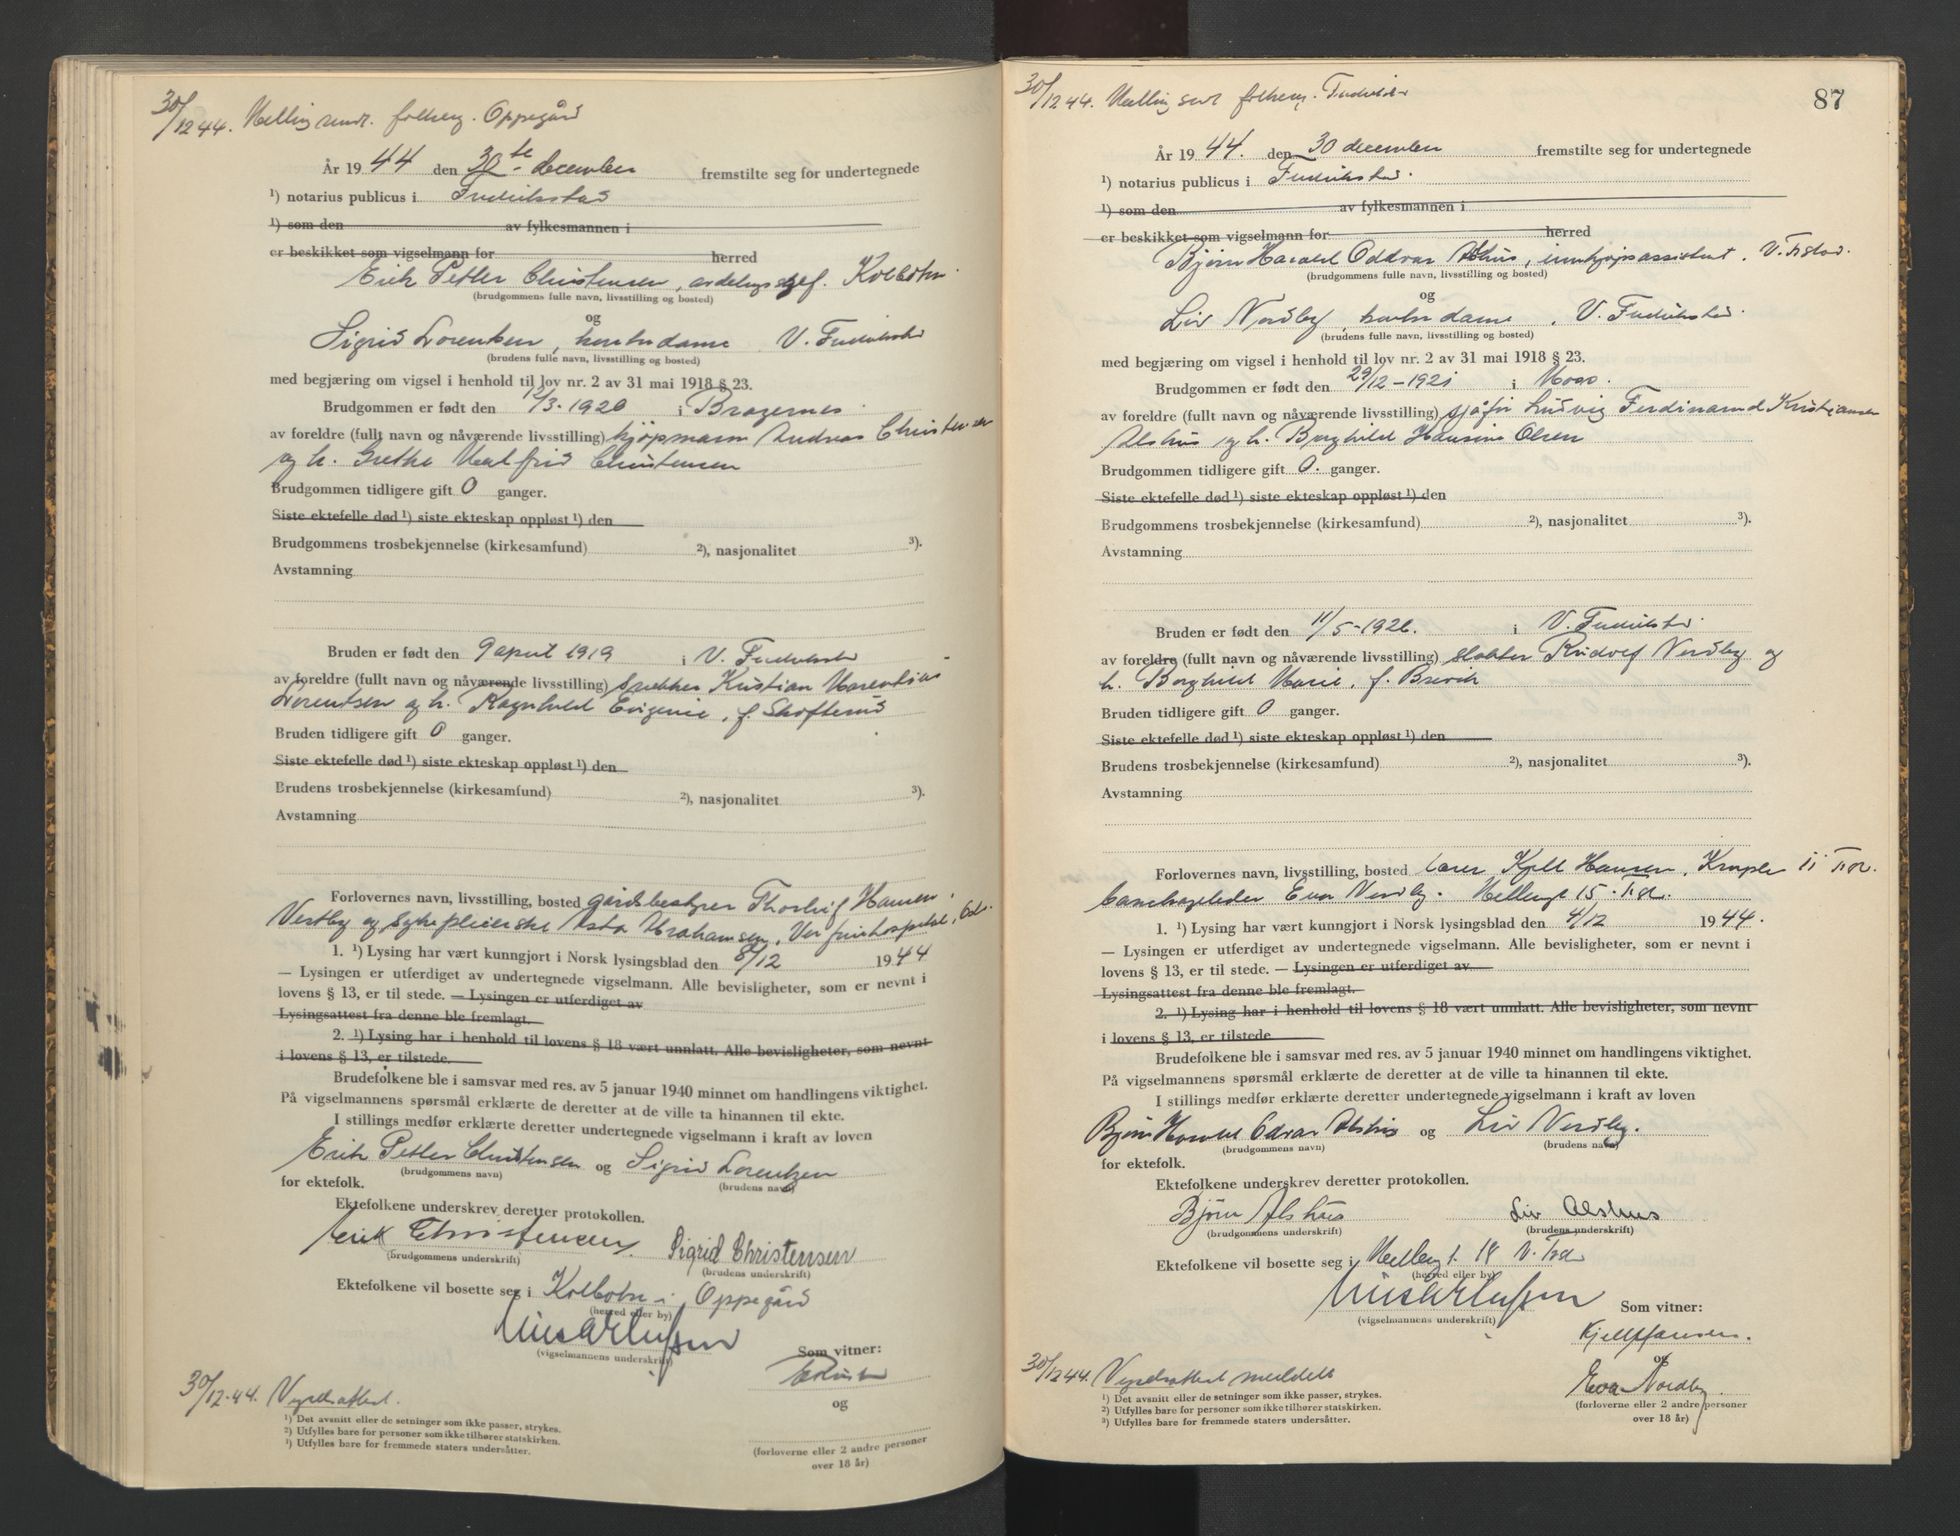 30/12 44. Melding sendt folkereg. Oppegård
År 1944 den 30te december fremstilte seg for undertegnede
¹) notarius publicus i Fredrikstad
¹) som den av fylkesmannen i
er beskikket som vigselmann for herred
Erik Petter Christensen, avdelingssjef. Kolbotn.
(brudgommens fulle navn, livsstilling og bosted)
og
Sigrid Lorentzen, kontordame V. Fredrikstad
(brudens fulle navn, livsstilling og bosted)
med begjæring om vigsel i henhold til lov nr. 2 av 31 mai 1918 § 23.
Brudgommen er født den 12/3-1920 i Bragernes
av foreldre (fullt navn og nåværende livsstilling) kjøpmann Andreas Christensen
og h. Grethe Christensen
Brudgommen tidligere gift 0 ganger.
Siste ektefelle død ¹) siste ekteskap oppløst ¹) den
Brudgommens trosbekjennelse (kirkesamfund) ²), nasjonalitet ³).
Avstamning
Bruden er født den 9 april 1919 i V. Fredrikstad
av foreldre (fullt navn og nåværende livsstilling) snekker Kristian Marentius
Lorentsen og h. Ragnhild Eugenie, f. Skofterud
Bruden tidligere gift 0 ganger.
Siste ektefelle død ¹) siste ekteskap oppløst ¹) den
Brudens trosbekjennelse (kirkesamfund) ²), nasjonalitet ³).
Avstamning
Forlovernes navn, livsstilling, bosted gårdsbestyrer Thorleif Hansen,
Vestby og sykepleierske Asta Abrahamsen,
1. ¹) Lysing har vært kunngjort i Norsk lysingsblad den 8/12 1944
— Lysingen er utferdiget av undertegnede vigselmann. Alle bevisligheter, som er nevnt i
lovens § 13, er til stede. — Lysingen er utferdiget av
Lysingsattest fra denne ble fremlagt.
2. ¹) Lysing har i henhold til lovens § 18 vært unnlatt. Alle bevisligheter, som nevnt
i lovens § 13, er tilstede.
Brudefolkene ble i samsvar med res. av 5 januar 1940 minnet om handlingens viktighet.
På vigselmannens spørsmål erklærte de deretter at de ville ta hinannen til ekte.
I stillings medfør erklærte deretter undertegnede vigselmann i kraft av loven
Erik Petter Christensen og Sigrid Lorentzen
(brudgommens navn) (brudens navn)
for ektefolk.
Ektefolkene underskrev deretter protokollen.
Erik Christensen. Sigrid Christensen
(brudgommens underskrift) (brudens underskrift)
Ektefolkene vil bosette seg i Kolbotn i Oppegård
(herred eller by)
(vigselmannens underskrift)
Som vitner:
30/12-44. Vigselsattest.
og
¹) Det avsnitt eller de setninger som ikke passer, strykes.
²) Utfylles bare for personer som ikke tilhører statskirken.
³) Utfylles bare for fremmede staters undersåtter.
(forloverne eller 2 andre personer
over 18 år)
30/12 44. Melding sendt folkereg. Fredrikstad
87
År 1944. den 30 december fremstilte seg for undertegnede
¹) notarius publicus i Fredrikstad.
¹) som den av fylkesmannen i
er beskikket som vigselmann for herred
Bjørn Harald Oddvar Alshus, innkjøpsassistent. V. Fr.stad.
(brudgommens fulle navn, livsstilling og bosted)
og
Liv Nordby, kontordame, V. Fredrikstad.
(brudens fulle navn, livsstilling og bosted)
med begjæring om vigsel i henhold til lov nr. 2 av 31 mai 1918 § 23.
Brudgommen er født den 29/12-1921 i Moss.
av foreldre (fullt navn og nåværende livsstilling) sjåfør Ludvig Ferdinand Kristiansen
Alshus og h. Borghild Hansine Olsen
Brudgommen tidligere gift 0. ganger.
Siste ektefelle død ¹) siste ekteskap oppløst ¹) den
Brudgommens trosbekjennelse (kirkesamfund) ²), nasjonalitet ³).
Avstamning
Bruden er født den 11/5-1920. i V. Fredrikstad.
av foreldre (fullt navn og nåværende livsstilling) slakter Rudolf Nordby og
h. Borghild Marie, f. Brevik
Bruden tidligere gift 0 ganger.
Siste ektefelle død ¹) siste ekteskap oppløst ¹) den
Brudens trosbekjennelse (kirkesamfund) ²), nasjonalitet ³).
Avstamning
Forlovernes navn, livsstilling, bosted lærer Kjell Hansen,
barnehageleder Eva Nordby. 15.
1. ¹) Lysing har vært kunngjort i Norsk lysingsblad den 4/12 1944.
— Lysingen er utferdiget av undertegnede vigselmann. Alle bevisligheter, som er nevnt i
lovens § 13, er til stede. — Lysingen er utferdiget av
Lysingsattest fra denne ble fremlagt.
2. ¹) Lysing har i henhold til lovens § 18 vært unnlatt. Alle bevisligheter, som nevnt
i lovens § 13, er tilstede
Brudefolkene ble i samsvar med res. av 5 januar 1940 minnet om handlingens viktighet.
På vigselmannens spørsmål erklærte de deretter at de ville ta hinannen til ekte.
I stillings medfør erklærte deretter undertegnede vigselmann i kraft av loven
Bjørn Harald Odvar Alshus og Liv Nordby.
(brudgommens navn) (brudens navn)
for ektefolk.
Ektefolkene underskrev deretter protokollen.
Bjørn Alshus Liv Alshus
(brudgommens underskrift) (brudens underskrift)
Ektefolkene vil bosette seg i 18 V.
(herred eller by)
(vigselmannens underskrift)
Som vitner:
Kjell Hansen.
30/12 44. Vigselsattest meddelt
og
Eva Nordby.
¹) Det avsnitt eller de setninger som ikke passer, strykes.
²) Utfylles bare for personer som ikke tilhører statskirken.
³) Utfylles bare for fremmede staters undersåtter.
(forloverne eller 2 andre personer
over 18 år)